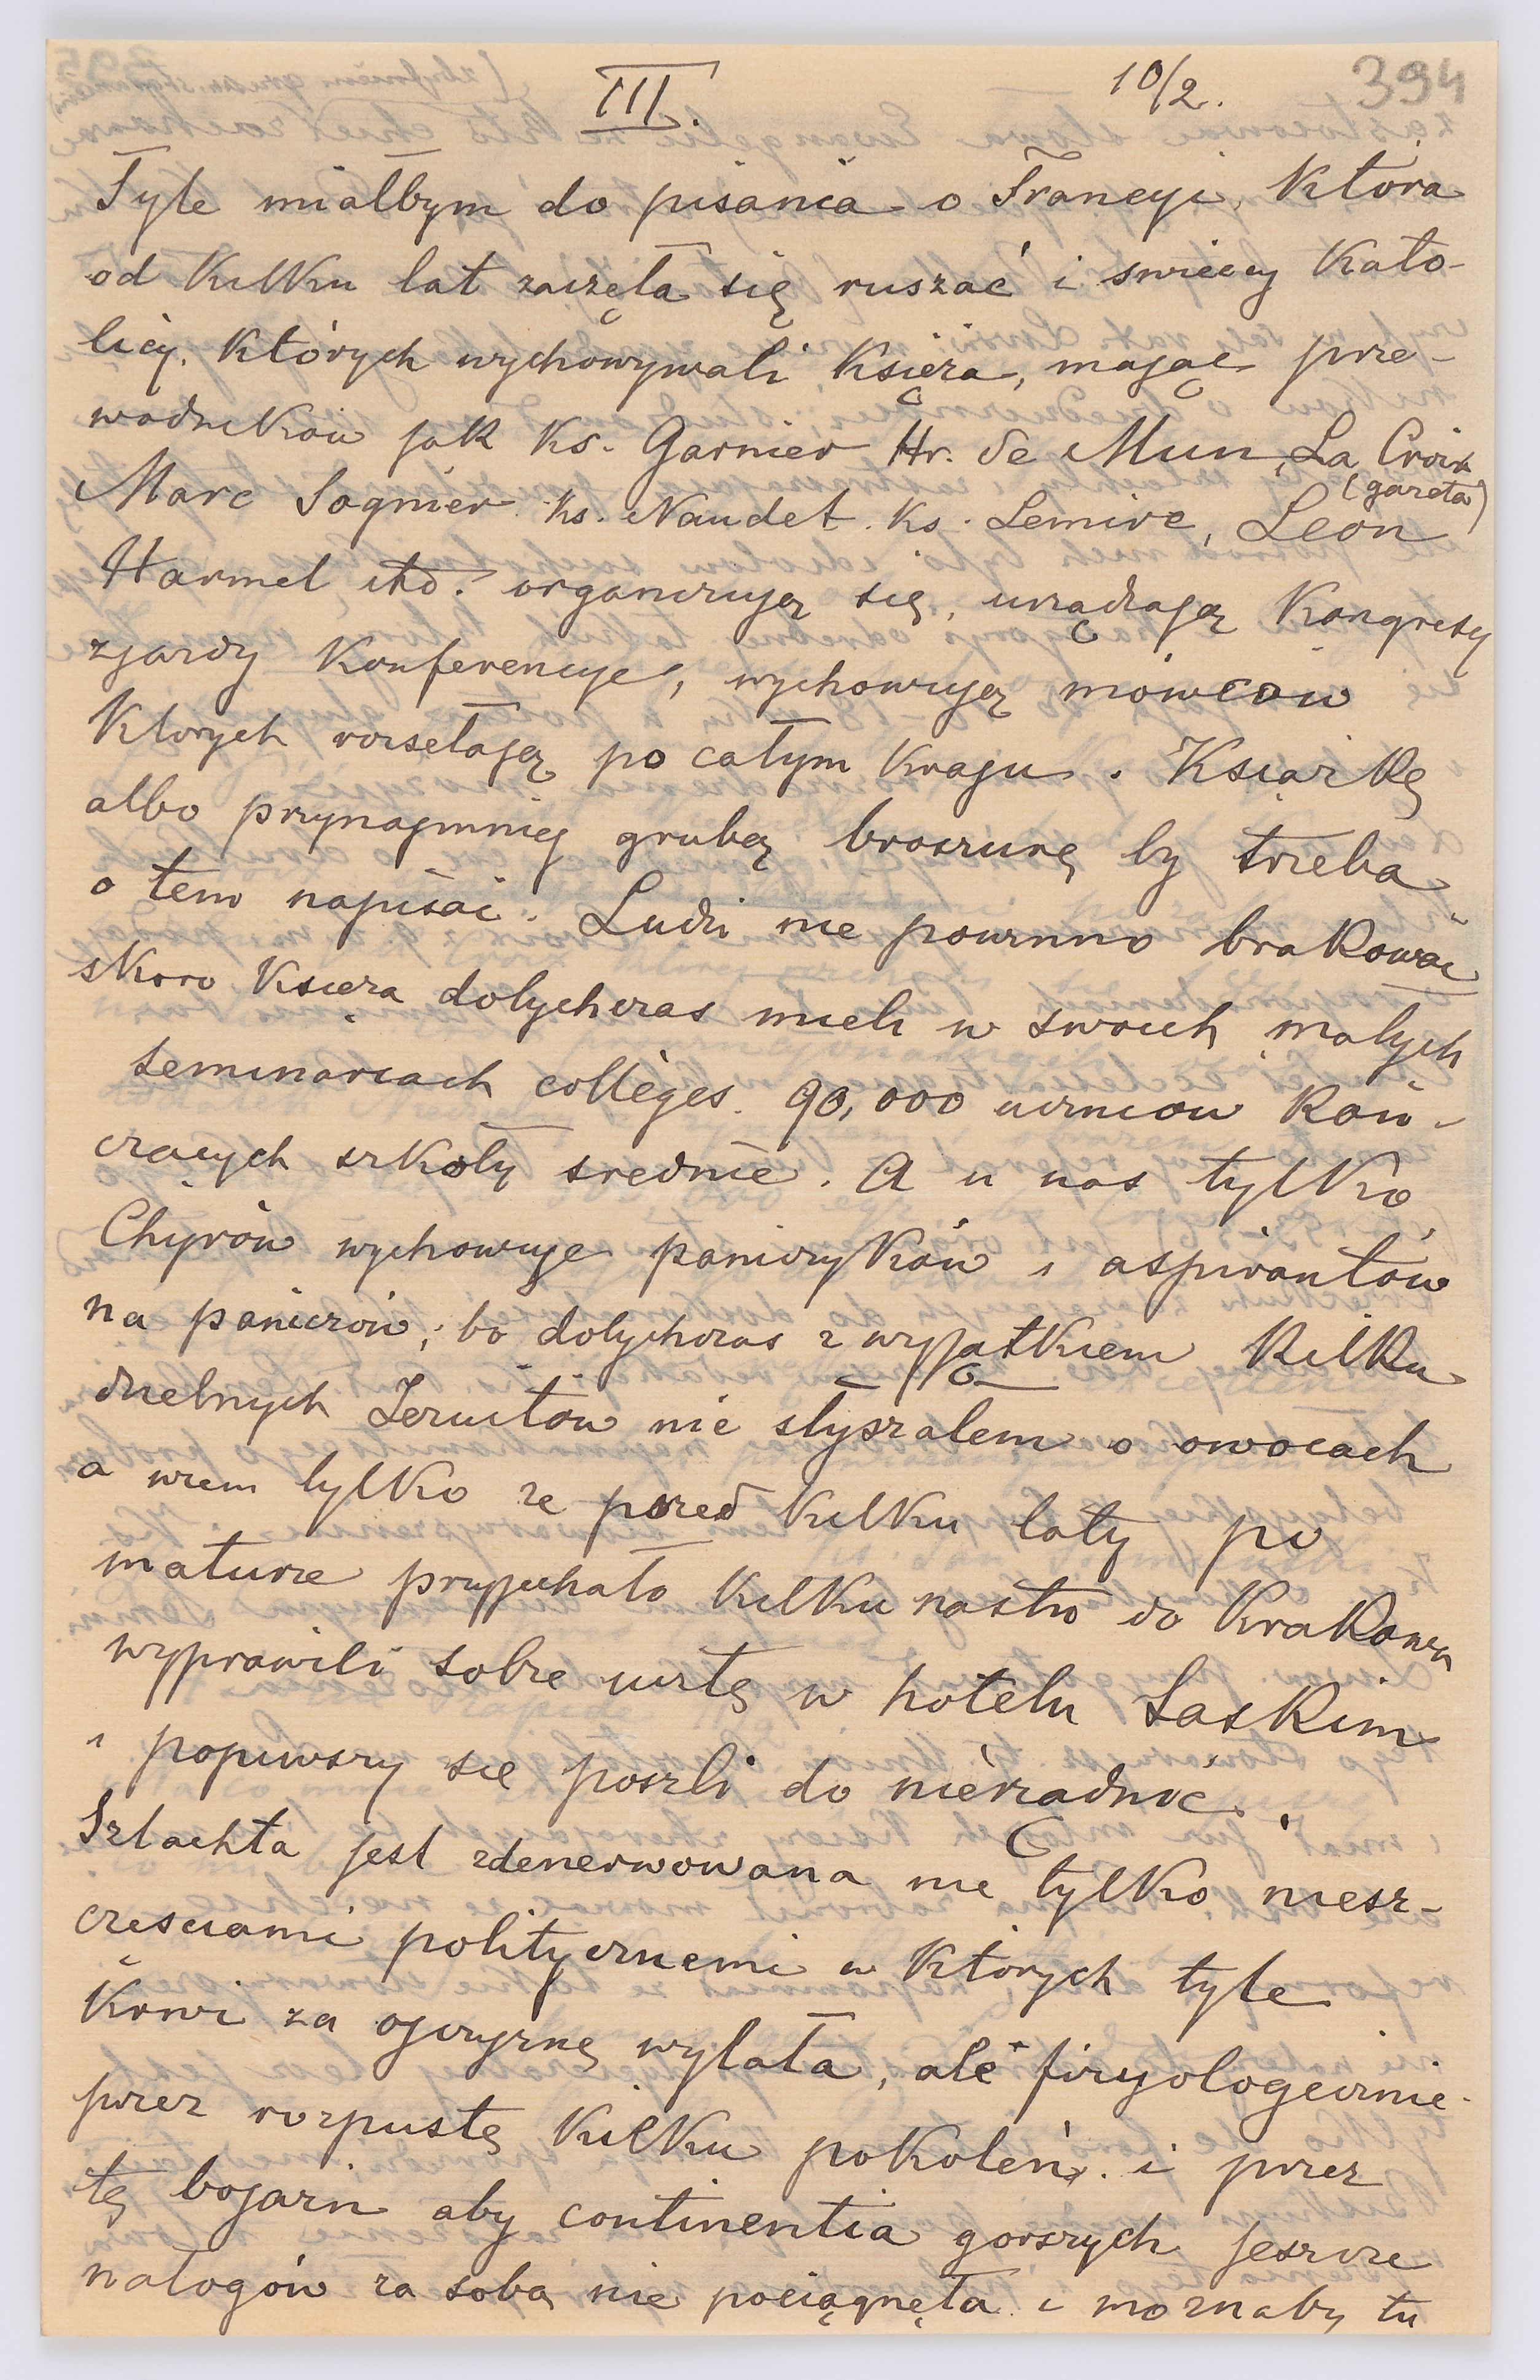 III. 10/2. 394
Tyle miałbym do pisania o Francyi, która
od kilku lat zaczęła się ruszać i swieccy kato-
licy, których wychowywali Księza, mając prze-
wodników jak ks. Garnier Hr. de Mun, La Croix
(gazeta)
Marc Sognier ks. Naudet. ks. Lemire, Leon
Harmel itd. organizują się, urządzają Kongresy
zjazdy Konferencye, wychowują mówców
Których rozsełają po całym kraju. Ksiązkę
albo przynajmniej grubą broszurę by trzeba
o tem napisać. Ludzi nie powinno brakować
skoro Księza dotychczas mieli w swoich małych
seminariach collèges. 90,000 uczniów koń-
czących szkoły srednie. A u nas tylko
Chyrów wychowuje paniczyków i aspirantów
na paniczów; bo dotychczas z wyjątkiem kilku
dzielnych Jezuitów nie słyszałem o owocach
a wiem tylko ze przed kilku laty po
maturze przyjechało kilkunastu do Krakowa
wyprawili sobie ucztę w hotelu Saskim
i popiwszy się poszli do nierządnic.
Szlachta jest zdenerwowana nie tylko niesz-
częsciami politycznemi w których tyle
krwi za ojczyznę wylała, ale fizyologicznie
przez rozpustę kilku pokoleń i przez
tę bojazn aby continentia gorszych jeszcze
nałogów za sobą nie pociągnęła i moznaby tu